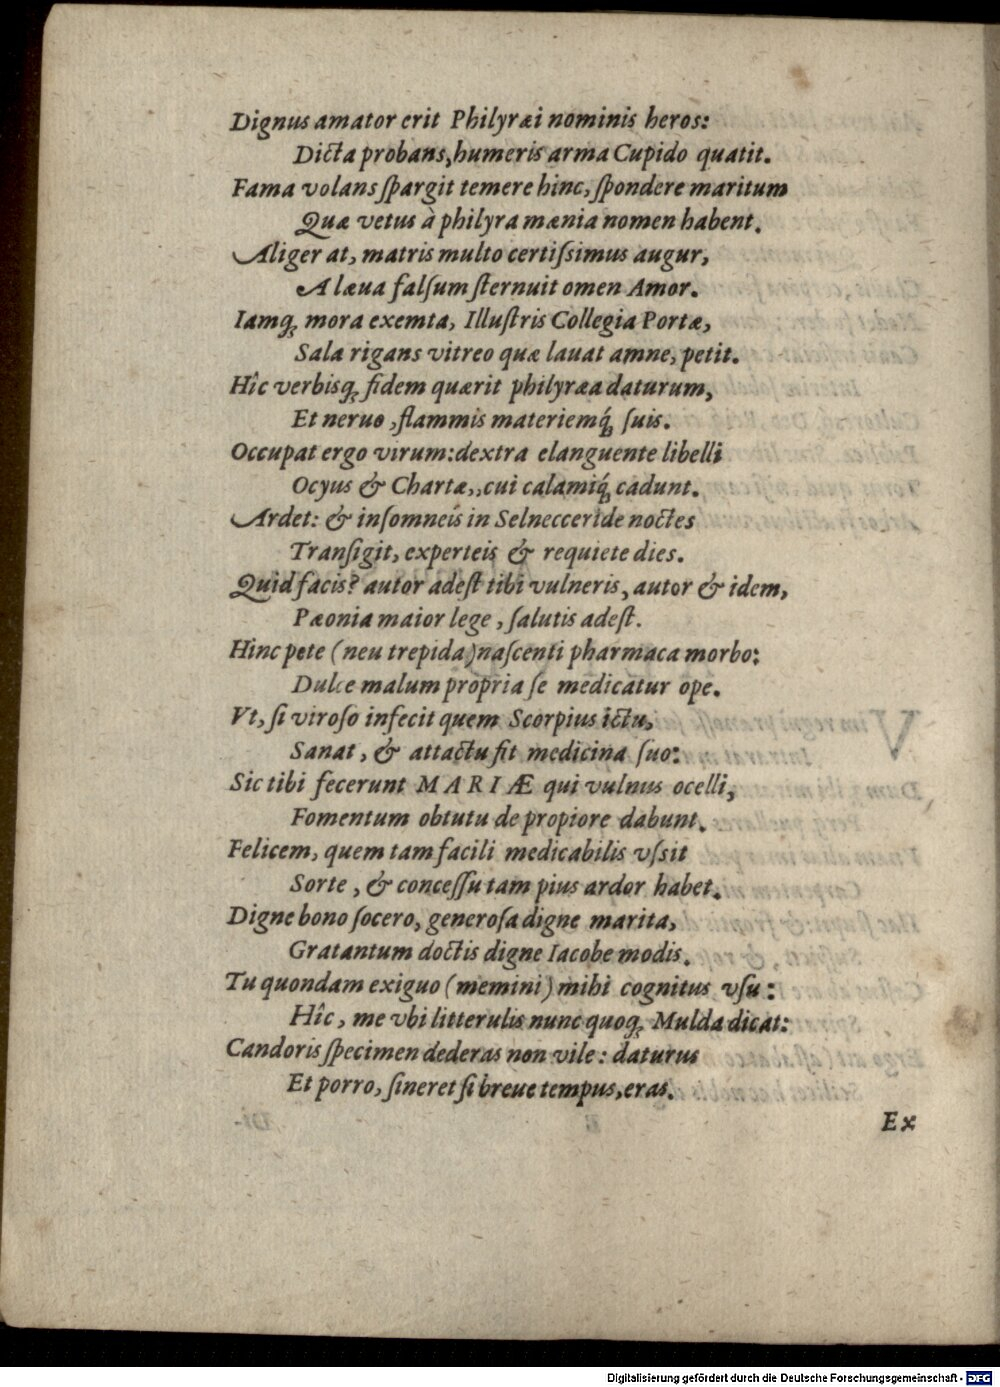 Dignus amator erit Philyræi nominis heros:
Dicta probans, humeris arma Cupido quatit.
Fama volans ſpargit temere hinc, ſpondere maritum
Quæ vetus à philyra mænia nomen habent.
Aliger at, matris multo certiſsimus augur,
A læua falſum ſternuit omen Amor.
Iamq́; mora exemta, Illuſtris Collegia Portæ,
Sala rigans vitreo quæ lauat amne, petit.
Hîc verbisq́; fidem quærit philyræa daturum,
Et neruo, flammis materiemq́; ſuis.
Occupat ergo virum: dextra elanguente libelli
Ocyus & Chartæ, cui calamiq́; cadunt.
Ardet: & inſomneis in Selnecceride noctes
Tranſigit, experteis & requiete dies.
Quid facis? autor adeſt tibi vulneris, autor & idem,
Pæonia maior lege, ſalutis adeſt.
Hinc pete (neu trepida) naſcenti pharmaca morbo:
Dulce malum propria ſe medicatur ope.
Vt, ſi viroſo infecit quem Scorpius ictu,
Sanat, & attactu fit medicina ſuo:
Sic tibi fecerunt MARIÆ qui vulnus ocelli,
Fomentum obtutu de propiore dabunt.
Felicem, quem tam facili medicabilis vſsit
Sorte, & conceſſu tam pius ardor habet.
Digne bono ſocero, generoſa digne marita,
Gratantum doctis digne Iacobe modis.
Tu quondam exiguo (memini) mihi cognitus vſu:
Hîc, me vbi litterulis nunc quoq́; Mulda dicat:
Candoris ſpecimen dederas non vile: daturus
Et porro, ſineret ſi breue tempus, eras.
Ex
Digitalisierung gefördert durch die Deutsche Forschungsgemeinschaft - DFG